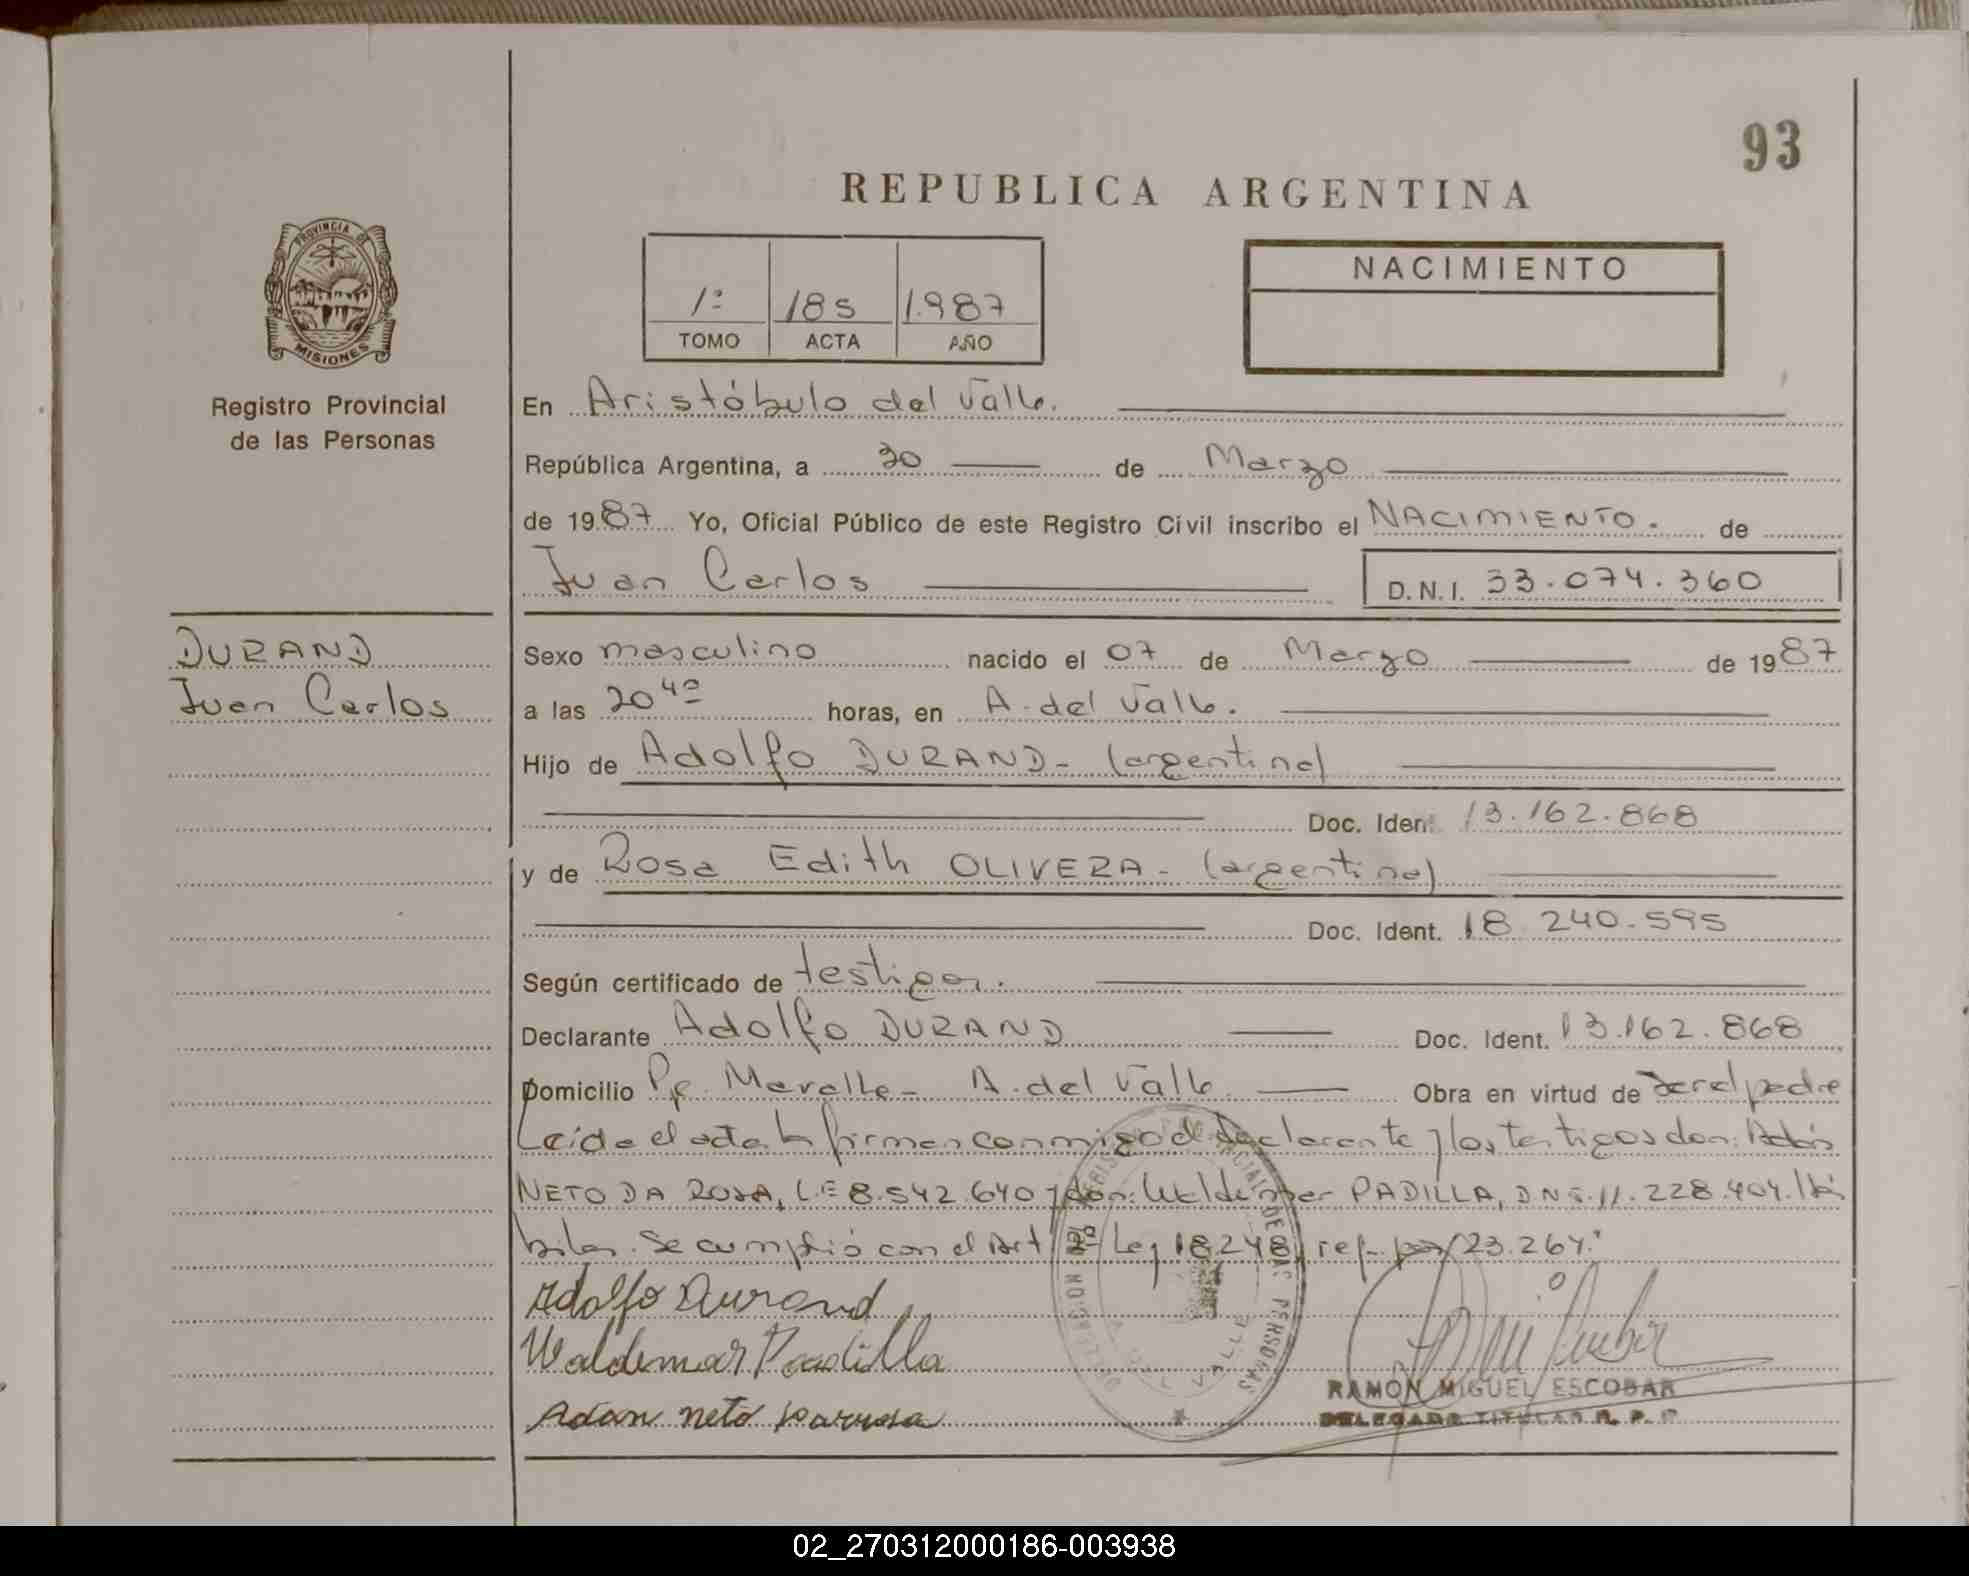 93
REPUBLICA ARGENTINA
PROVINCIA DE
MISIONES
Registro Provincial
de las Personas
1º 185 1.987
TOMO ACTA AÑO
NACIMIENTO
En Aristóbulo del Valle.
República Argentina, a 30 de Marzo
de 1987 Yo, Oficial Público de este Registro Civil inscribo el NACIMIENTO. de
Juan Carlos D.N.I. 33.074.360
DURAND
Juan Carlos
Sexo masculino nacido el 07 de Marzo de 1987
a las 20 40 horas, en A. del Valle.
Hijo de Adolfo DURAND - (argentino)
Doc. Ident. 13.162.868
y de Rosa Edith OLIVERA - (argentina)
Doc. Ident. 18.240.595
Según certificado de testigos.
Declarante Adolfo DURAND Doc. Ident. 13.162.868
Domicilio Pje. Maralle - A. del Valle Obra en virtud de ser el padre
Leída el acta la firman conmigo el declarante y los testigos don: Adán
NETO DA ROSA, L.E 8.542.640 y don: Waldemar PADILLA, D.N.I. 11.228.404. Há
biles. Se cumplió con el Art Ley 18248, ref. por 23.264.
Adolfo Durand
Waldemar Padilla
Adan neto
RAMON MIGUEL ESCOBAR
DELEGADO TITULAR R. P. P.
02_270312000186-003938